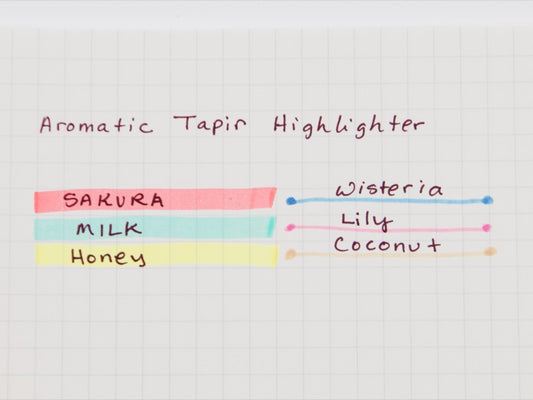 Aromatic Tapir Highlighter
SAKURA
MILK
Honey
Wisteria
Lily
Coconut